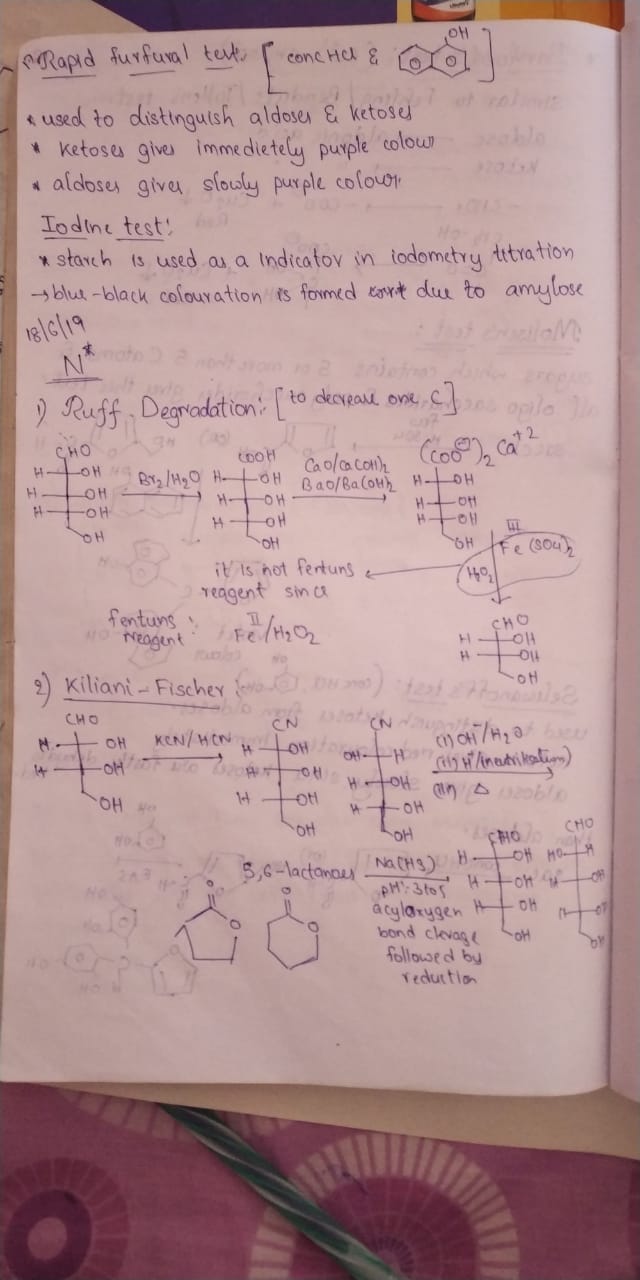 Rapid furfural test: [conc HCl & OH]
* used to distinguish aldoses & ketoses
* ketoses gives immedietely purple colour
* aldoses gives slowly purple colour.
Iodine test:
* starch is used as a Indicator in iodometry titration
→ blue-black colouration is formed due to amylose
18/6/19
N*
1) Ruff Degradation: [to decrease one C]
CHO COOH (COO⊖)2 Ca+2
H OH Br2/H2O H OH CaO/Ca(OH)2 H OH
H OH H OH BaO/Ba(OH)2 H OH
H OH H OH H OH
OH OH OH
III
Fe(SO4)2
H2O2
it is not fentuns
reagent since
fentuns reagent : II Fe/H2O2
CHO
H OH
H OH
OH
2) Kiliani-Fischer :
CHO CN CN
H OH KCN/HCN H OH OH H (i) OH-/H2O
H OH H OH H OH (ii) H+/(neutrilisation)
OH H OH H OH (iii) Δ
OH OH
5,6-lactones Na(Hg)
pH: 3 to 5
acyl oxygen
bond clevage
followed by
reduction
O O
O O
CHO CHO
H OH HO H
H OH H OH
H OH H OH
OH OH